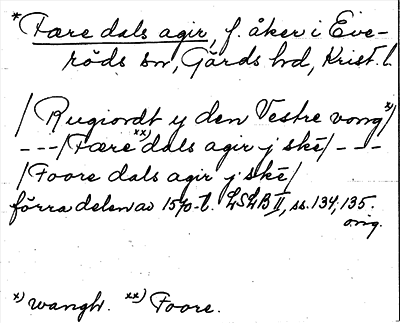 *Fære dals agir, f. åker i Eve-
röds sn, Gärds hd, Krist. l.
/ Rugiordt y den Vestre vong x)/
---/Fære xx) dals agir j ské/ ---
/Foore dals agir j ské/
förra delen av 1570-t. LSLB II, ss. 134, 135.
orig.
x) wangh. xx) Foore.